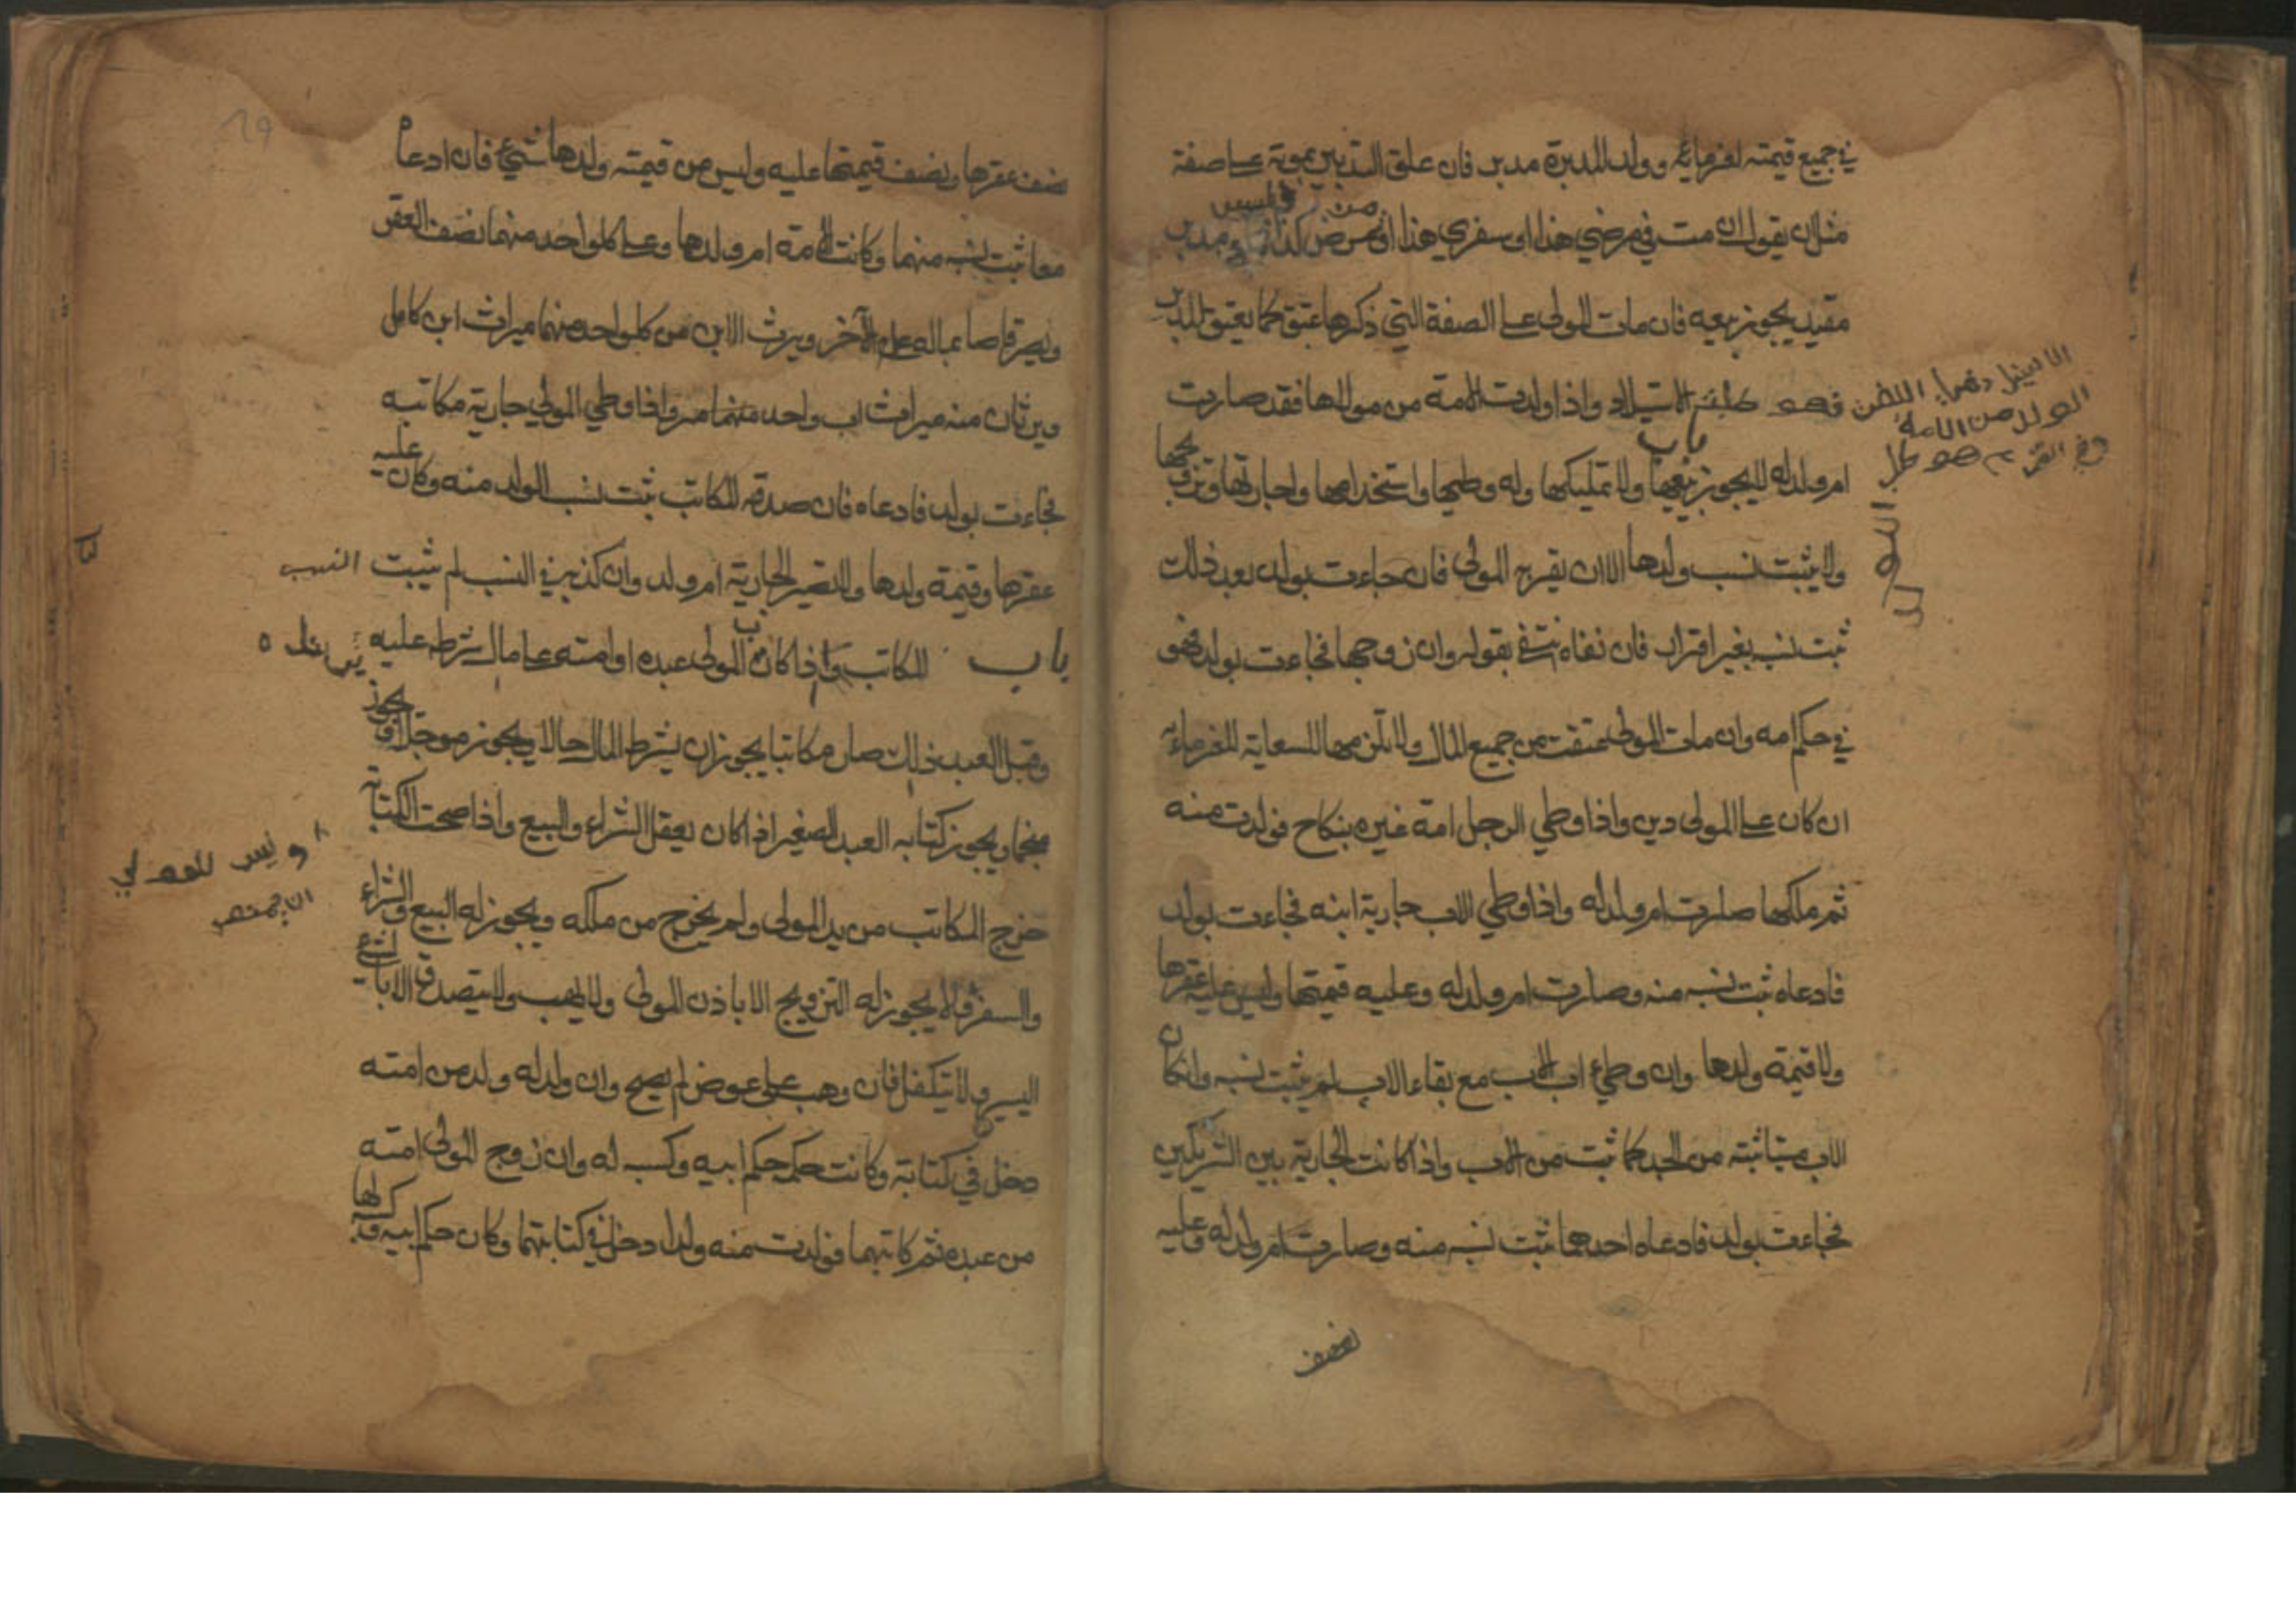 في جميع قيمته لغرمائه وولد المدبرة مدبر فان علق التدبير بموته على صفة
مثل ان يقول ان مت في مرضي هذا او سفري هذا او من مرض كذا فليس بمدبر
مقيد يجوز بيعه فان مات المولى على الصفة التي ذكرها عتق كما يعتق المدبر
باب الاستيلاد واذا ولدت الامة من مولاها فقد صارت
ام ولد له لا يجوز بيعها ولا تمليكها وله وطيها واستخدامها واجارتها وتزويجها
ولا يثبت نسب ولدها الا ان يقر به المولى فان جاءت بولد بعد ذلك
ثبت نسبه بغير اقرار فان نفاه انتفى بقوله وان زوجها فجاءت بولد فهو
في حكم امه وان مات المولى عتقت من جميع المال ولا تلزمها السعاية للغرماء
ان كان على المولى دين واذا وطي الرجل امة غيره بنكاح فولدت منه
ثم ملكها صارت ام ولد له واذا وطي الاب جارية ابنه فجاءت بولد
فادعاه ثبت نسبه منه وصارت ام ولد له وعليه قيمتها وليس عليه عقرها
ولا قيمة ولدها وان وطي اب الاب مع بقاء الاب لم يثبت نسبه وان كان
الاب ميتا ثبت من الجد كما ثبت من الاب واذا كانت الجارية بين الشريكين
فجاءت بولد فادعاه احدهما ثبت نسبه منه وصارت ام ولد له وعليه
نصف
نصف عقرها ونصف قيمتها عليه وليس من قيمته ولدها شيء فان ادعاه
معا ثبت نسبه منهما وكانت الامة ام ولدها وعلى كل واحد منهما نصف العقر
ويصير قاصا بماله على الآخر ويرث الابن من كل واحد منهما ميراث ابن كامل
ويرثان منه ميراث اب واحد منهما واذا وطي المولى جارية مكاتبه
فجاءت بولد فادعاه فان صدقه المكاتب ثبت نسب الولد منه وكان عليه
عقرها وقيمة ولدها ولا تصير الجارية ام ولد وان كذبه في النسب لم يثبت النسب
باب المكاتب واذا كاتب المولى عبده او امته على مال شرطه عليه
وقبل العبد ذلك صار مكاتبا يجوز ان يشرط المال حالا ويجوز موجلا ويجوز
منجما ويجوز كتابه العبد الصغير اذا كان يعقل الشراء والبيع واذا صحت الكتابة
خرج المكاتب من يد المولى ولم يخرج من ملكه ويجوز له البيع والشراء
والسفر ولا يجوز له التزويج الا باذن المولى ولا يهب ولا يتصدق الا بالشيء
اليسير ولا يتكفل فان وهب على عوض لم يصح وان ولد له ولد من امته
دخل في كتابته وكانت حكمه حكم ابيه وكسبه له وان زوج المولى امته
من عبده ثم كاتبهما فولدت منه ولدا دخل في كتابتهما وكان حكم ابيه وكسبه لها